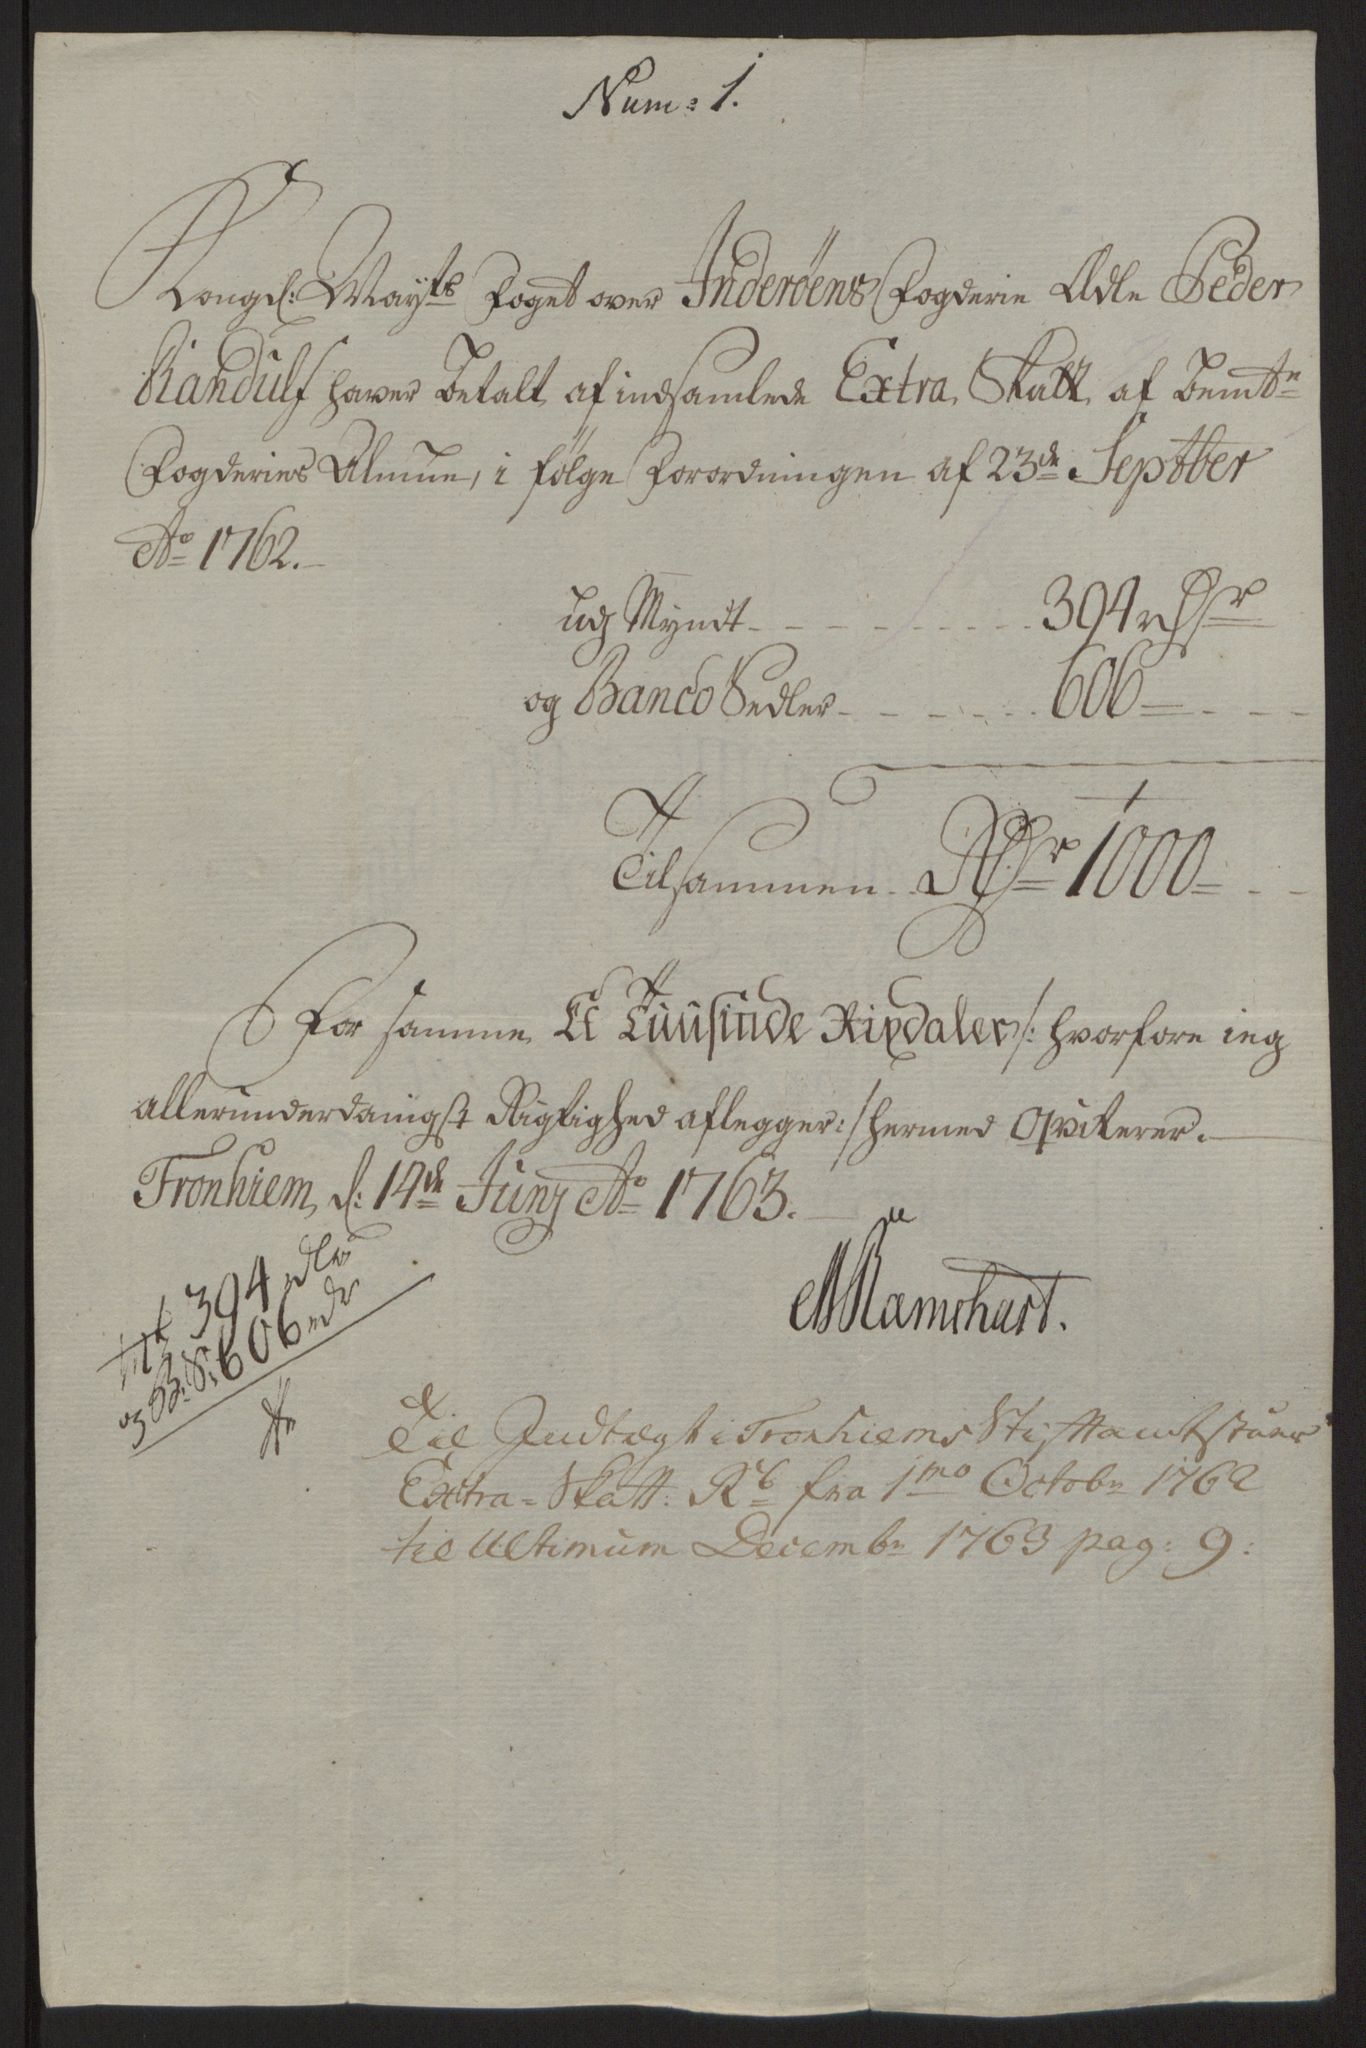 Num: 1.
Kongel: Mayts Foget over Inderöens Fogderie Adle Peder
Randulf haver betalt af indsamlede Extra Skatt af bemte
Fogderies Almue, i følge Forordningen af 23de Septber
Ao 1762.
udj Myndt 394 rdr
og Banco Sedler 606
Tilsammen Rdr 1000
For samme Et Tuusinde Rixdaler /: hvorfore ieg
allerunderdanigst Rigtighed aflegger :/ hermed Qviterer.
Tronhiem, d: 14de Junj Ao 1763.
MRamshart.
394 rdlr
og B: S: 606 rdr
Til Indtægt i Tronhiems Stiftamtstues
Extra-Skatt: R fra 1mo Octobr 1762
til Ultimum Decembr 1763 pag: 9: